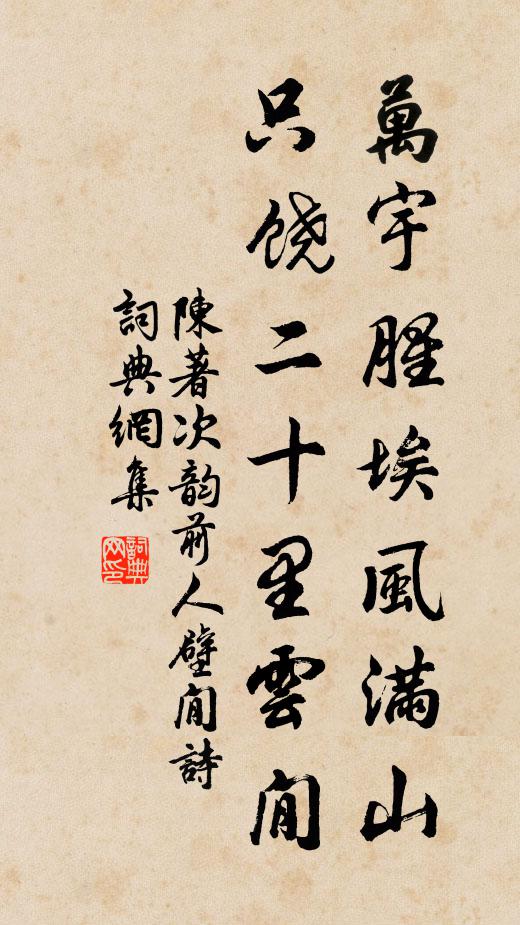 萬宇腥埃風滿山
只饒二十里雲間
陳著次韵前人壁間詩
詞典網集
詞典網印